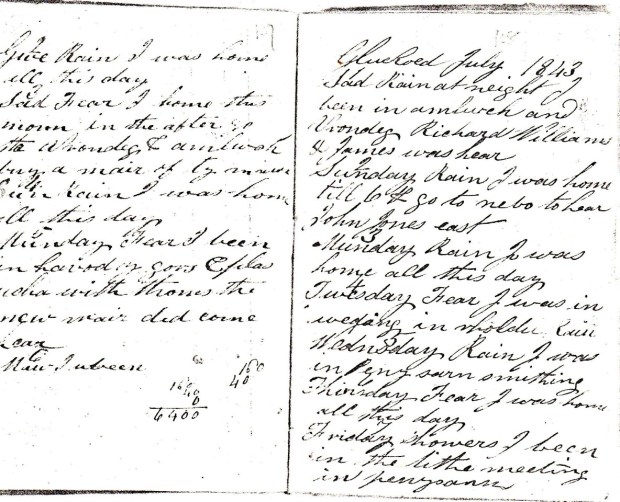 Gwe Rain I was home
all this day
Sad Fear I home this
morn in the after go
to Vrondeg & amlwch
buy a mair of ty mawr
Sun Rain I was home
all this day
Munday Fear I been
in havod y gors
with thoms the
new mair did come
hear
160
40
160
40
0
6400
July 1843
Sad Rain at neight I
been in amlwch and
Vrondeg Richard Williams
& James was hear
Sunday Rain I was home
till 6 go to nebo to hear
John Jones east
Munday Rain I was
home all this day
Tuesday Fear I was in
in
Wednesday Rain I was
in Peny sarn smithing
Thirsday Fear I was home
all this day
Friday showers I been
in the little meeting
in penysarn